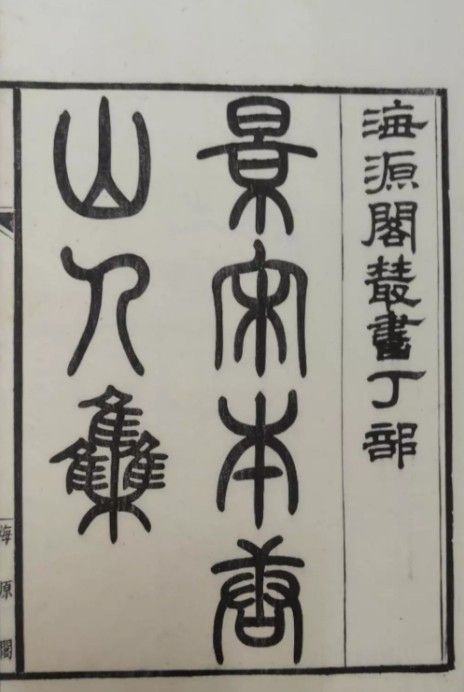 海源閣叢書丁部
景宋本唐
山人集
海源閣